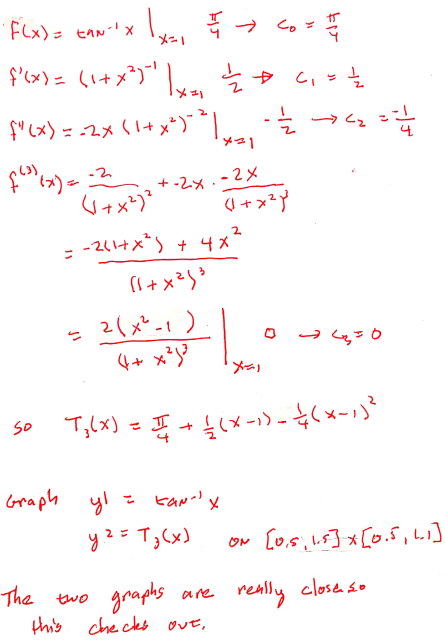 F(x) = tan⁻¹ x |ₓ₌₁ π/4 → c₀ = π/4
f'(x) = (1+x²)⁻¹ |ₓ₌₁ 1/2 → c₁ = 1/2
f''(x) = -2x (1+x²)⁻² |ₓ₌₁ -1/2 → c₂ = -1/4
f⁽³⁾(x) = -2/(1+x²)² + -2x · -2x/(1+x²)³
= (-2(1+x²) + 4x²)/(1+x²)³
= 2(x²-1)/(1+x²)³ |ₓ₌₁ 0 → c₃ = 0
so T₃(x) = π/4 + 1/2(x-1) - 1/4(x-1)²
Graph y1 = tan⁻¹ x
y2 = T₃(x) on [0.5, 1.5] x [0.5, 1.1]
The two graphs are really close so
this checks out.